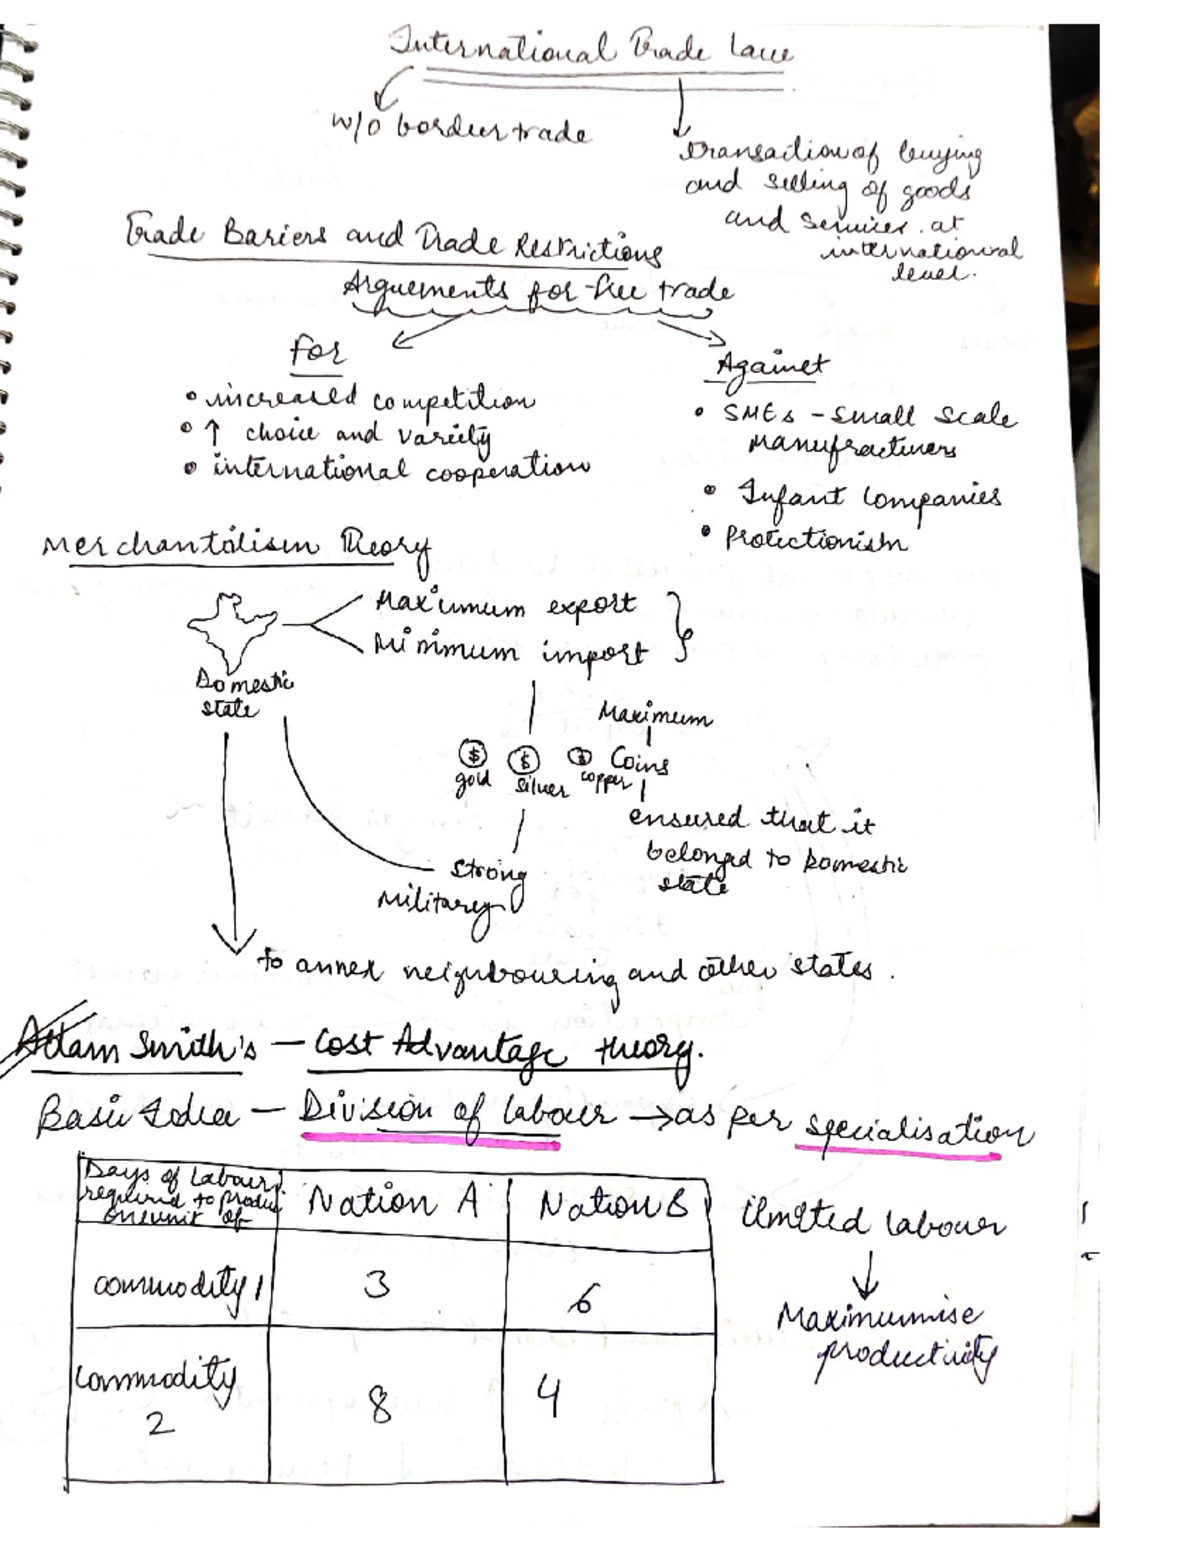 International Trade Law
w/o border trade
transaction of buying
and selling of goods
and services at
international
level.
Trade Bariers and Trade Restrictions
Arguements for free trade
For
• increased competition
• ↑ choice and variety
• international cooperation
Against
• SMEs - Small Scale
Manufracturers
• Infant Companies
• Protectionism
Merchantilism Theory
Maximum export
Minimum import
Domestic
state
Maximum
$ $ $ Coins
gold silver copper
ensured that it
belonged to Domestic
state
Strong
Military
to annex neighbouring and other states.
Adam Smith's - Cost Advantage theory.
Basic Idea - Division of labour → as per specialisation
Days of Labour
required to produce
one unit of
Nation A
Nation B
commodity 1
3
6
commodity
2
8
4
limited labour
↓
Maximumise
productivity